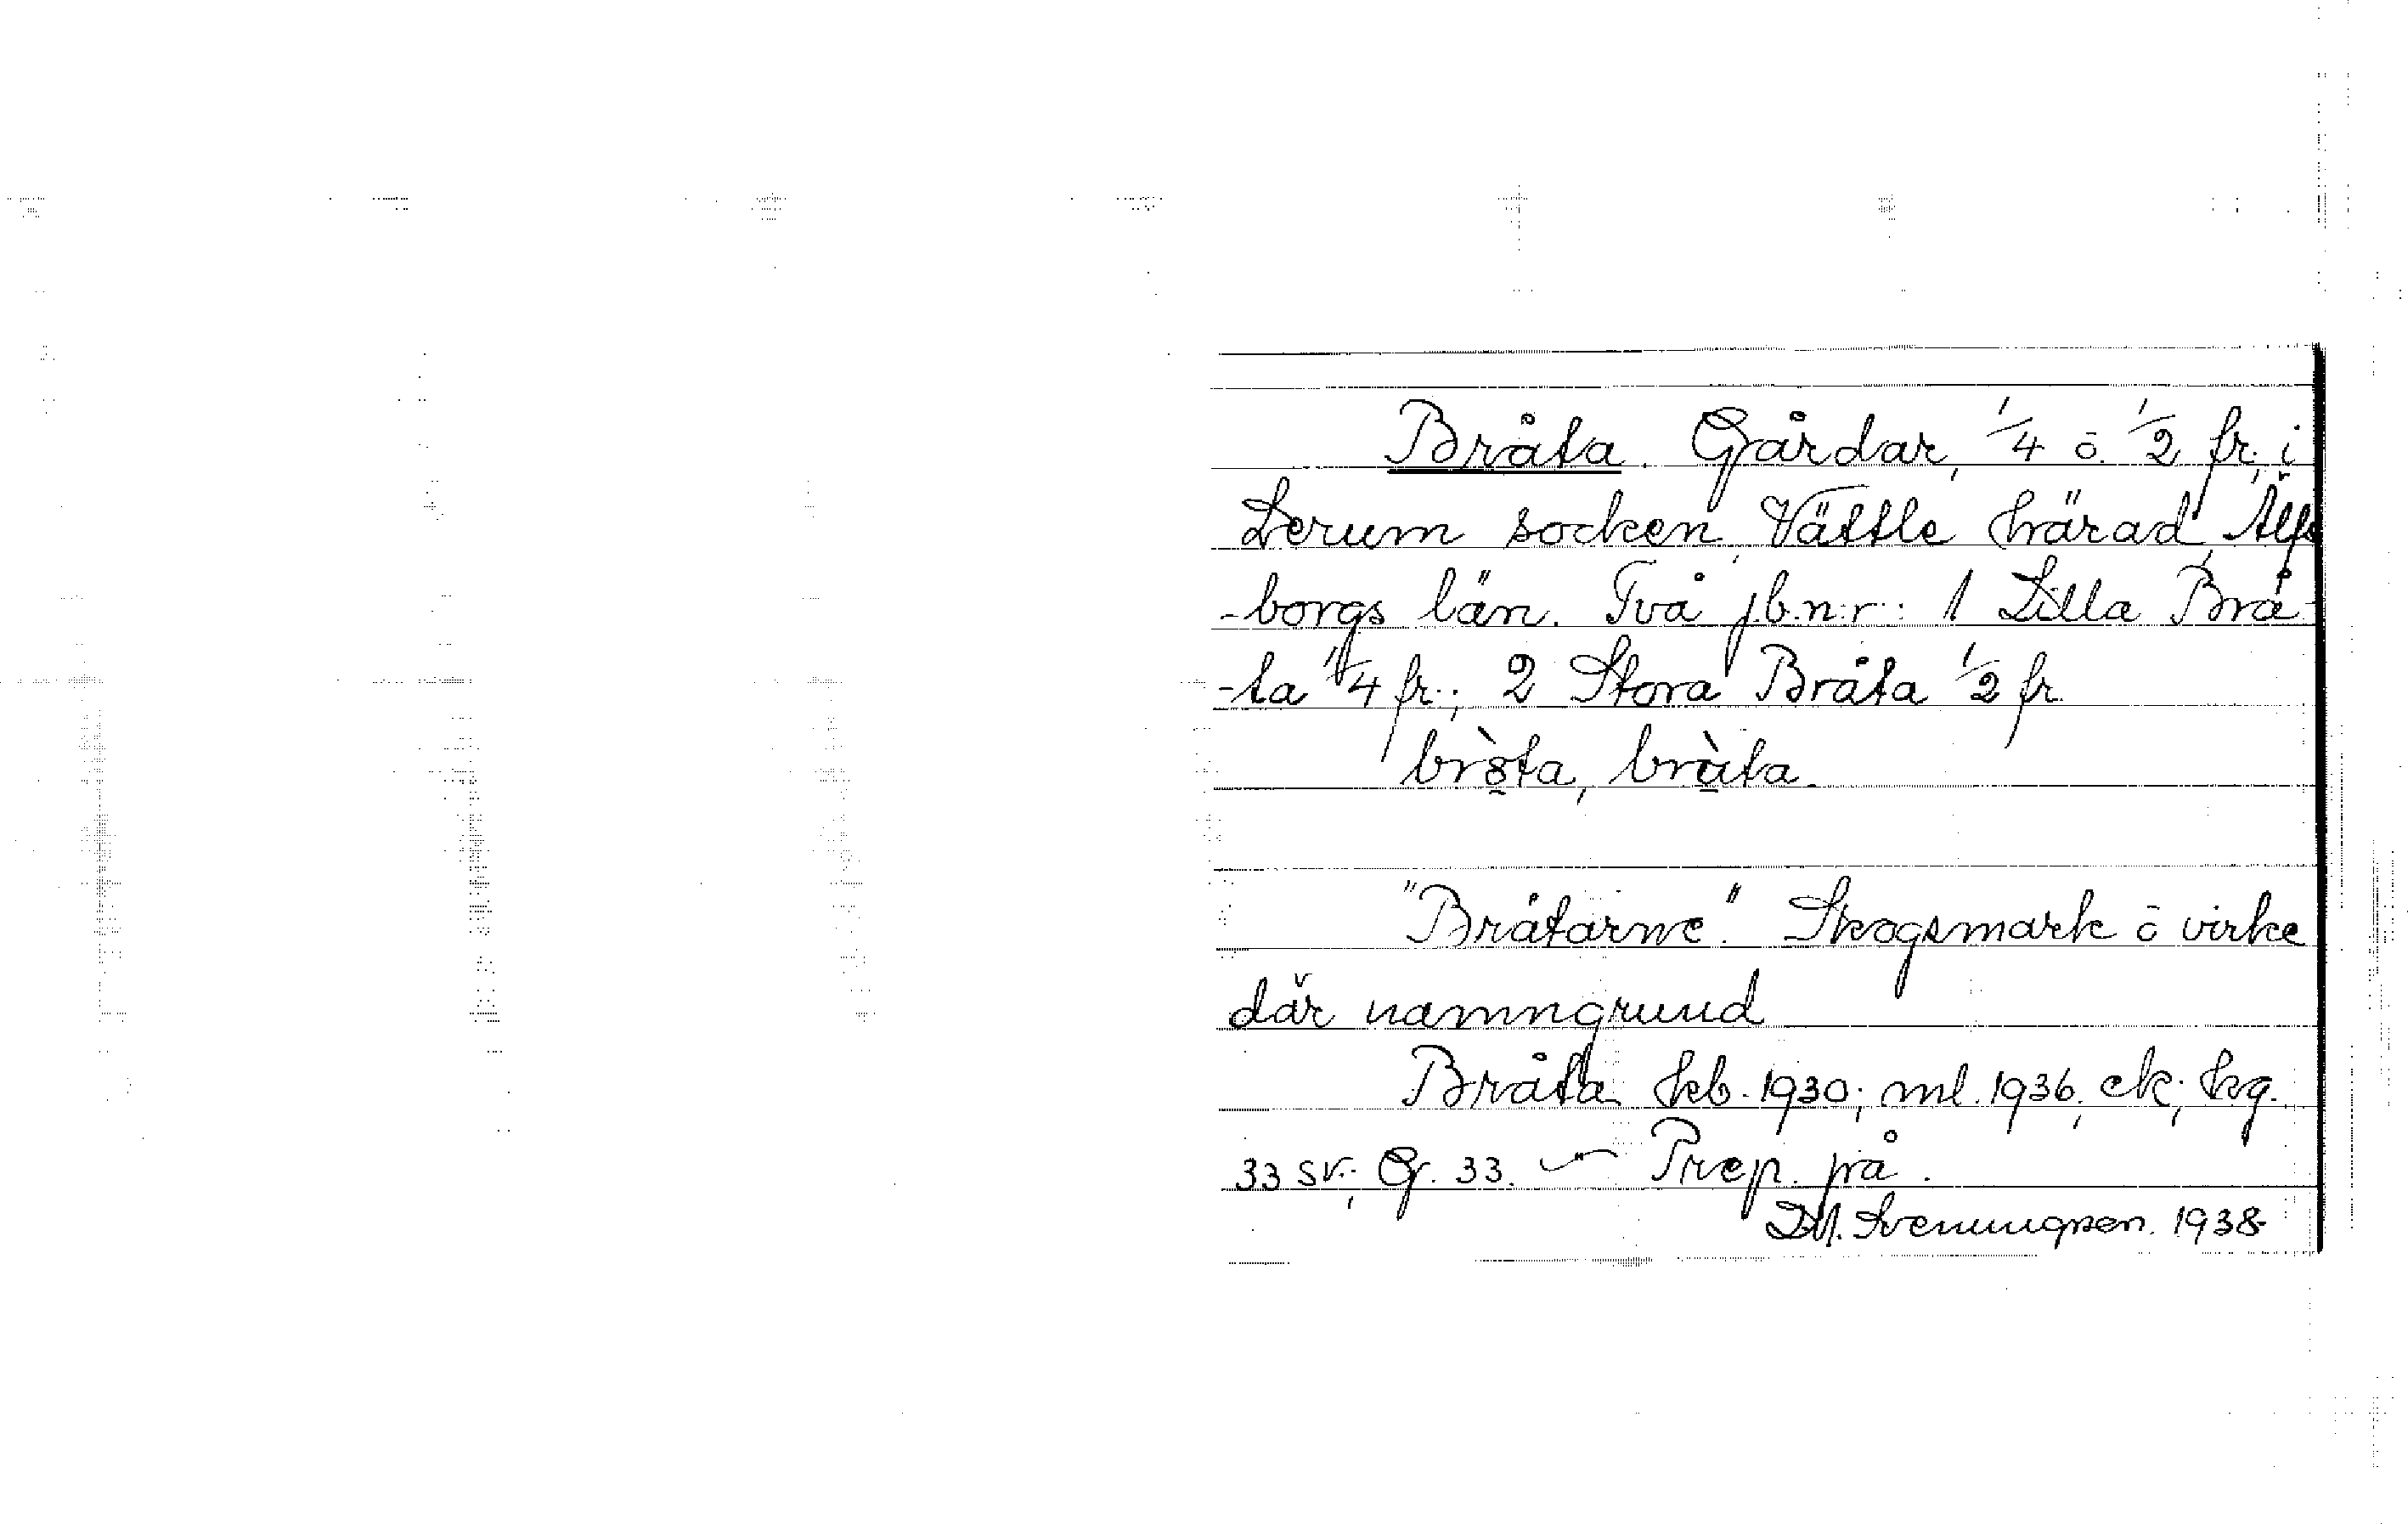 Bråta. Gårdar, 1/4 o. 1/2 fr., i
Lerum socken, Vättle härad, Älfs
-borgs län. Två j.b.n:r: 1 Lilla Brå
-ta 1/4 fr.; 2 Stora Bråta 1/2 fr.
"Bråtarne". Skogsmark o virke
där namngrund
Bråta kb. 1930; ml. 1936, ek; hg.
33 sv.; G. 33. — Prep. på.
D.M. Svenungsson. 1938